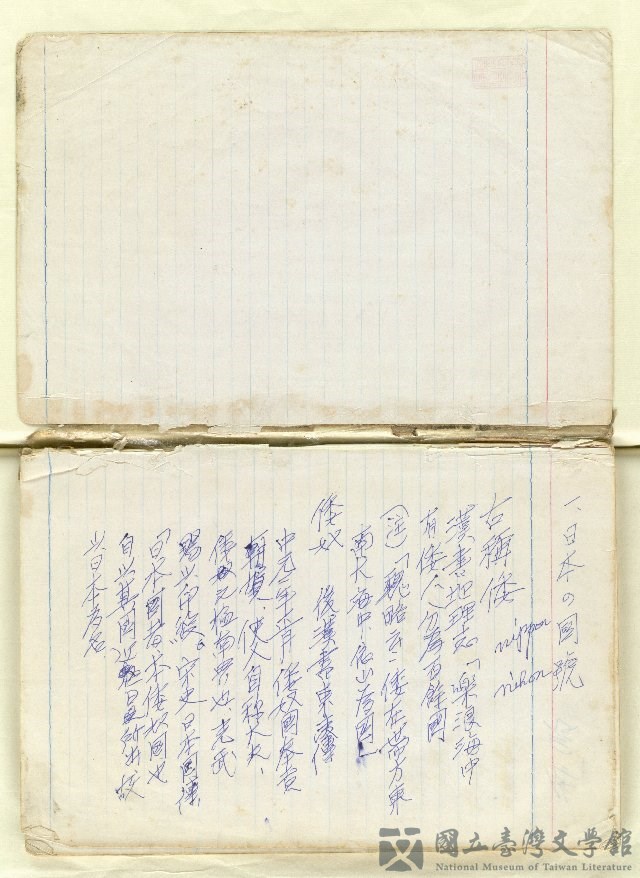 一、日本の國號
nippon
nihon
古稱倭
漢書地理志「樂浪海中
有倭人」分為百餘國
(注)「魏略云、倭在帶方東
南大海中、依山為國」
倭奴 後漢書東夷傳
中元二年正月、倭奴國奉貢
朝賀、使人自稱大夫、
倭奴之極南界也 光武
賜以印綬。宋史日本國傳
「日本國者、本倭奴國也
自以其國近日所出故
以日本為名
國立臺灣文學館
National Museum of Taiwan Literature